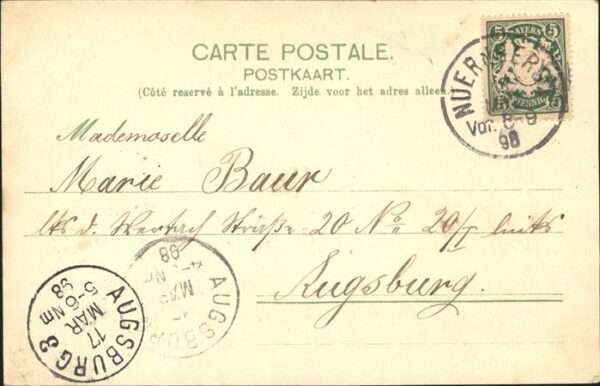 CARTE POSTALE.
POSTKAART.
(Côté reservé à l'adresse. Zijde voor het adres alleen.)
5 BAYERN 5
5 PFENNIG 5
NUERNBERG
Vor. 8-9
98
Mademoselle
Marie Baur
lts d. Wertach Straße 20 No 20/I links
Augsburg.
AUGSBURG 3
17
MAR
5-6 Nm
98
AUGSBUR
MAR
98